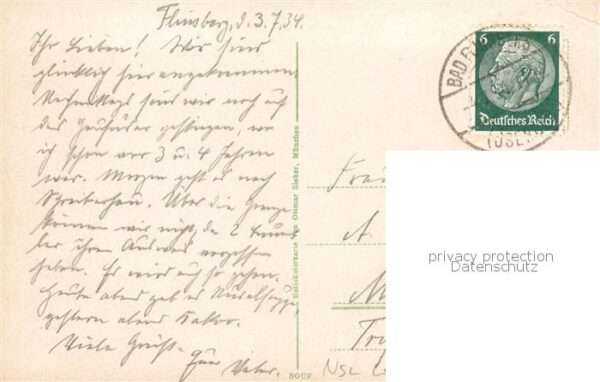 Flinsberg, d. 3.7.34.
Ihr Lieben! Wir sind
glücklich hier angekommen.
Nachmittags sind wir noch auf
das Heufuder gestiegen, wo
ich schon vor 3 u. 4 Jahren
war. Morgen geht es nach
Schreiberhau. Über die Grenze
können wir nicht, da 2
ihren Ausweis vergessen
haben. Es wird auch so gehen.
Heute abend gab es Nudelsuppe,
gestern abend Kakao.
Viele Grüße
Euer
6 6
Deutsches Reich
BAD
(ISERG
Heliokolorkarte von Ottmar Zieher, München
A.
M
privacy protection
Datenschutz